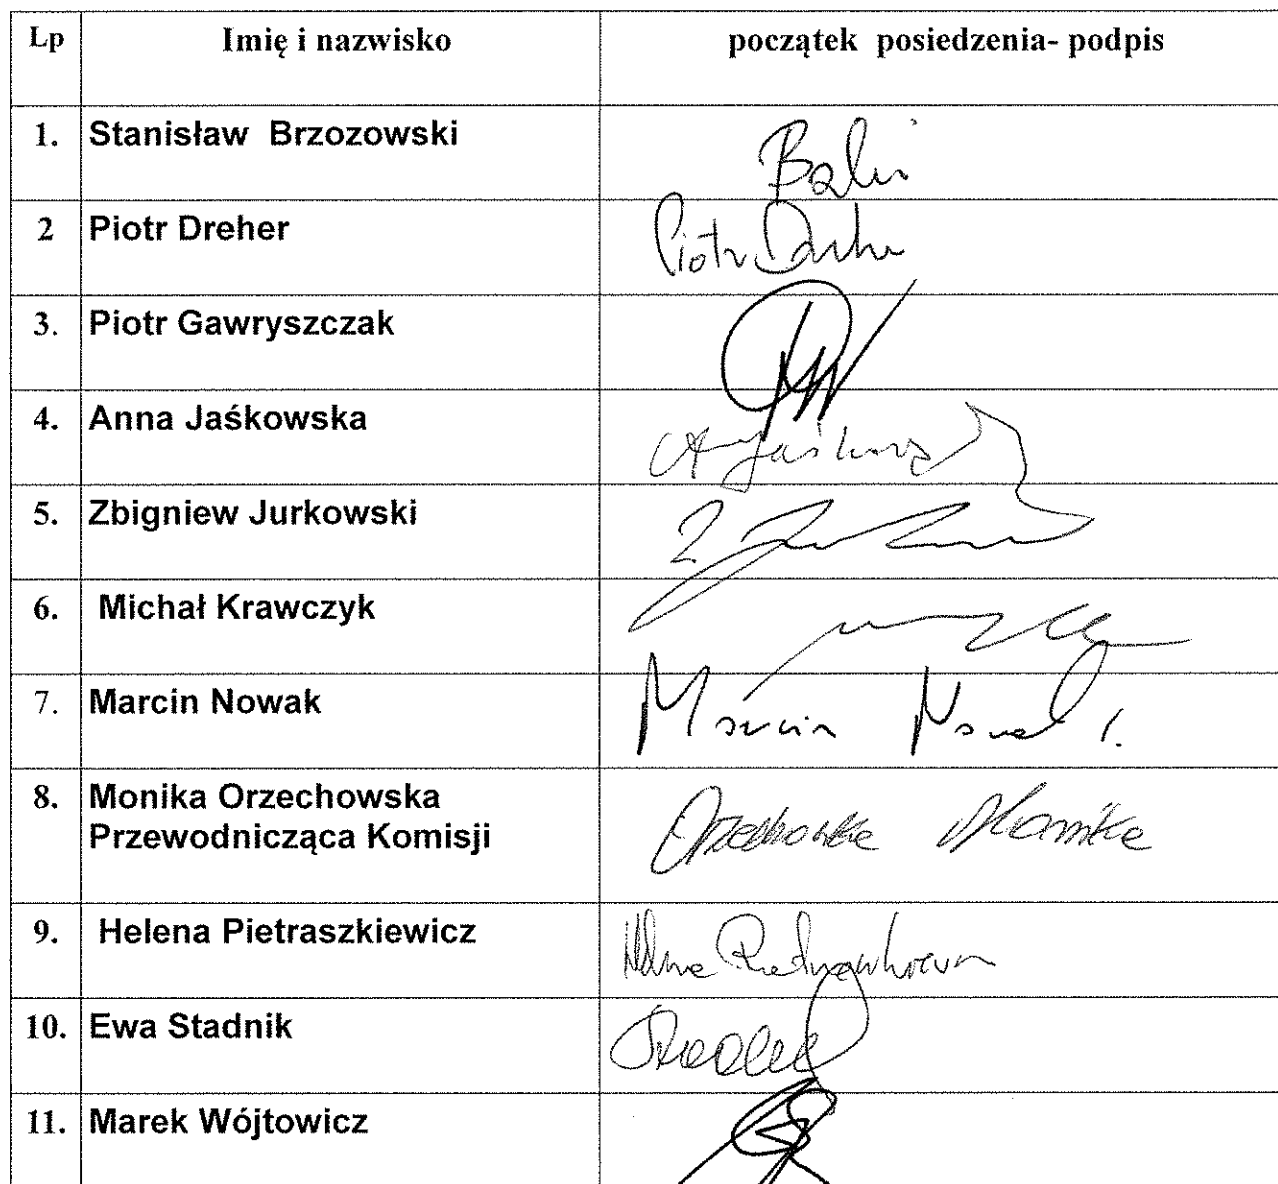 Lp Imię i nazwisko początek posiedzenia- podpis
1. Stanisław Brzozowski
2 Piotr Dreher Piotr
3. Piotr Gawryszczak
4. Anna Jaśkowska
5. Zbigniew Jurkowski
6. Michał Krawczyk
7. Marcin Nowak Marcin Nowak
8. Monika Orzechowska
Przewodnicząca Komisji Orzechowska Monika
9. Helena Pietraszkiewicz
10. Ewa Stadnik
11. Marek Wójtowicz